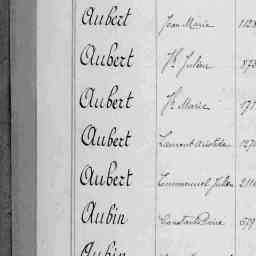 Aubert Jean Marie 1128
Aubert Jh Julien 873
Aubert Jh Marie 171
Aubert Laurent Aristide 127
Aubert Emmanuel Julien 2116
Aubin Constant 579
Aubin